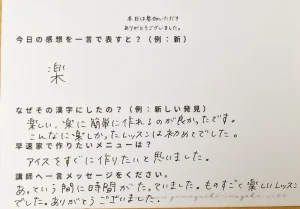 本日は参加いただき
ありがとうございました。
今日の感想を一言で表すと？（例：新）
楽
なぜその漢字にしたの？（例：新しい発見）
楽しい、楽に簡単に作れるのが良かったです。
こんなに楽しかったレッスンは初めてでした。
早速家で作りたいメニューは？
アイスもすぐに作りたいと思いました。
講師へ一言メッセージをください。
あっという間に時間がたっていました。ものすごく楽しいレッスン
でした。ありがとうございました。